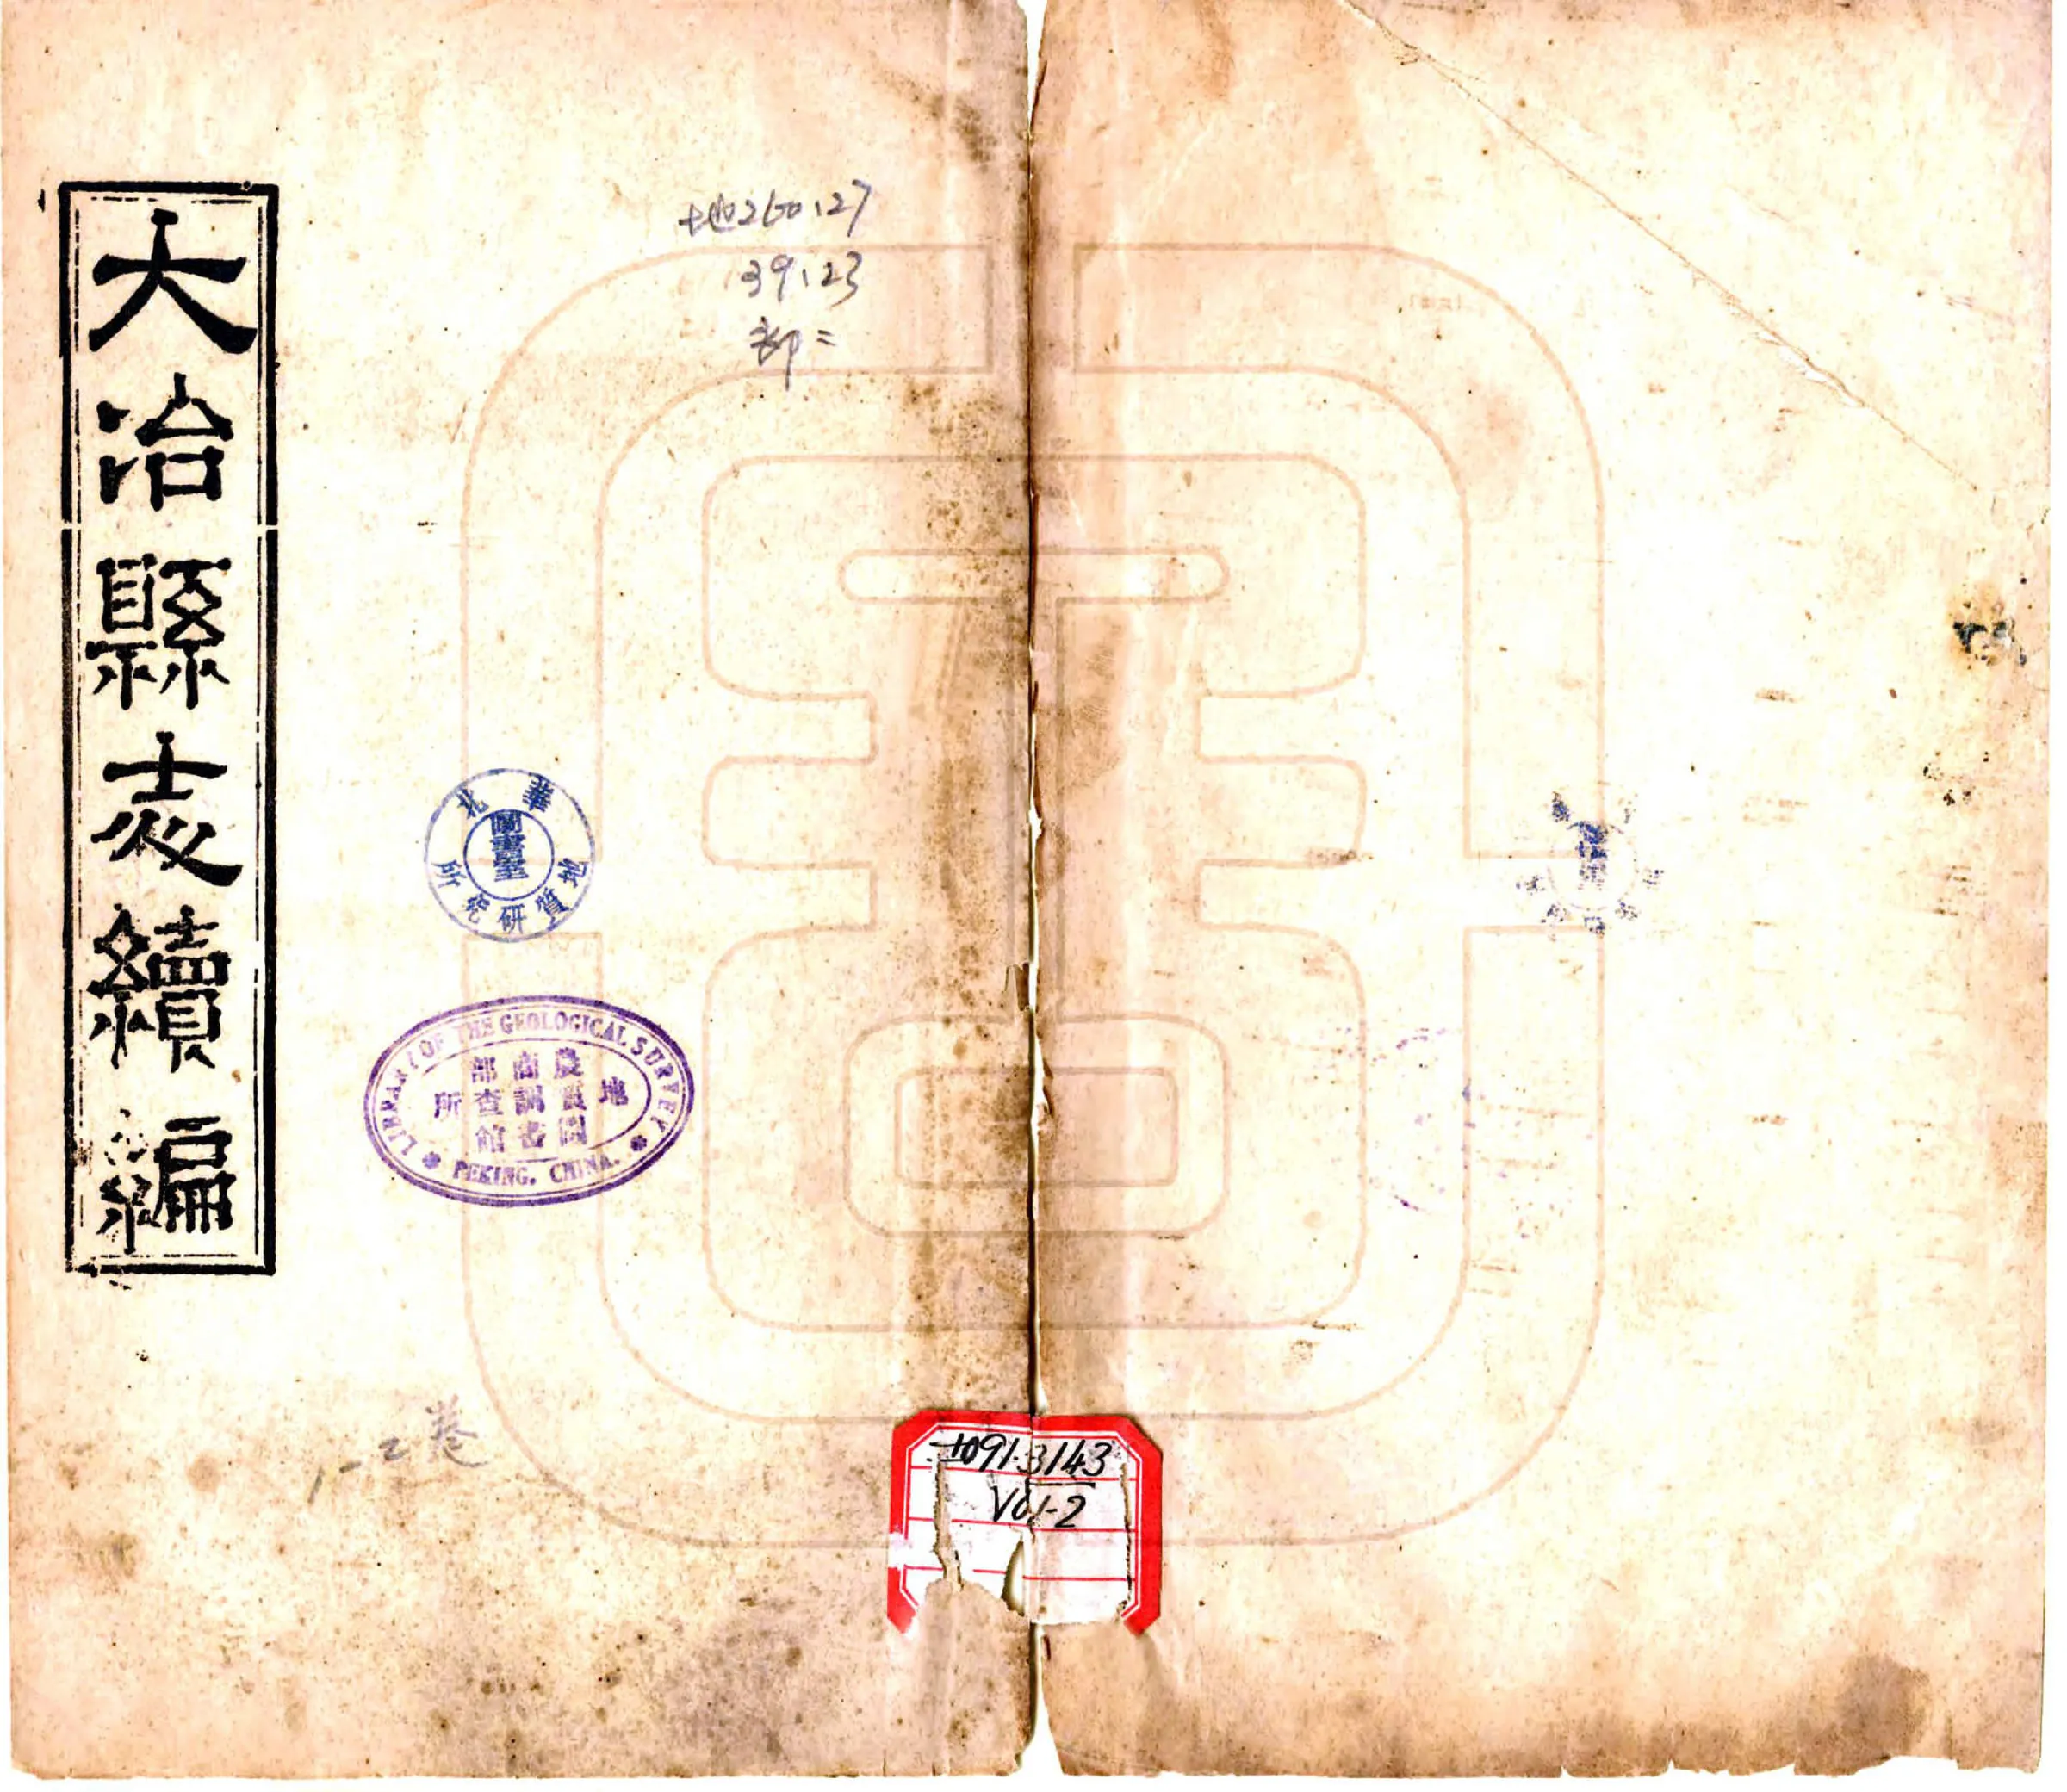 大冶縣志續編
地260.27
39.23
部二
華北地質研究所
圖書室
LIBRARY OF THE GEOLOGICAL SURVEY
農商部
地質調查所
圖書館
PEKING, CHINA.
1-2卷
±091.3143
Vo1-2